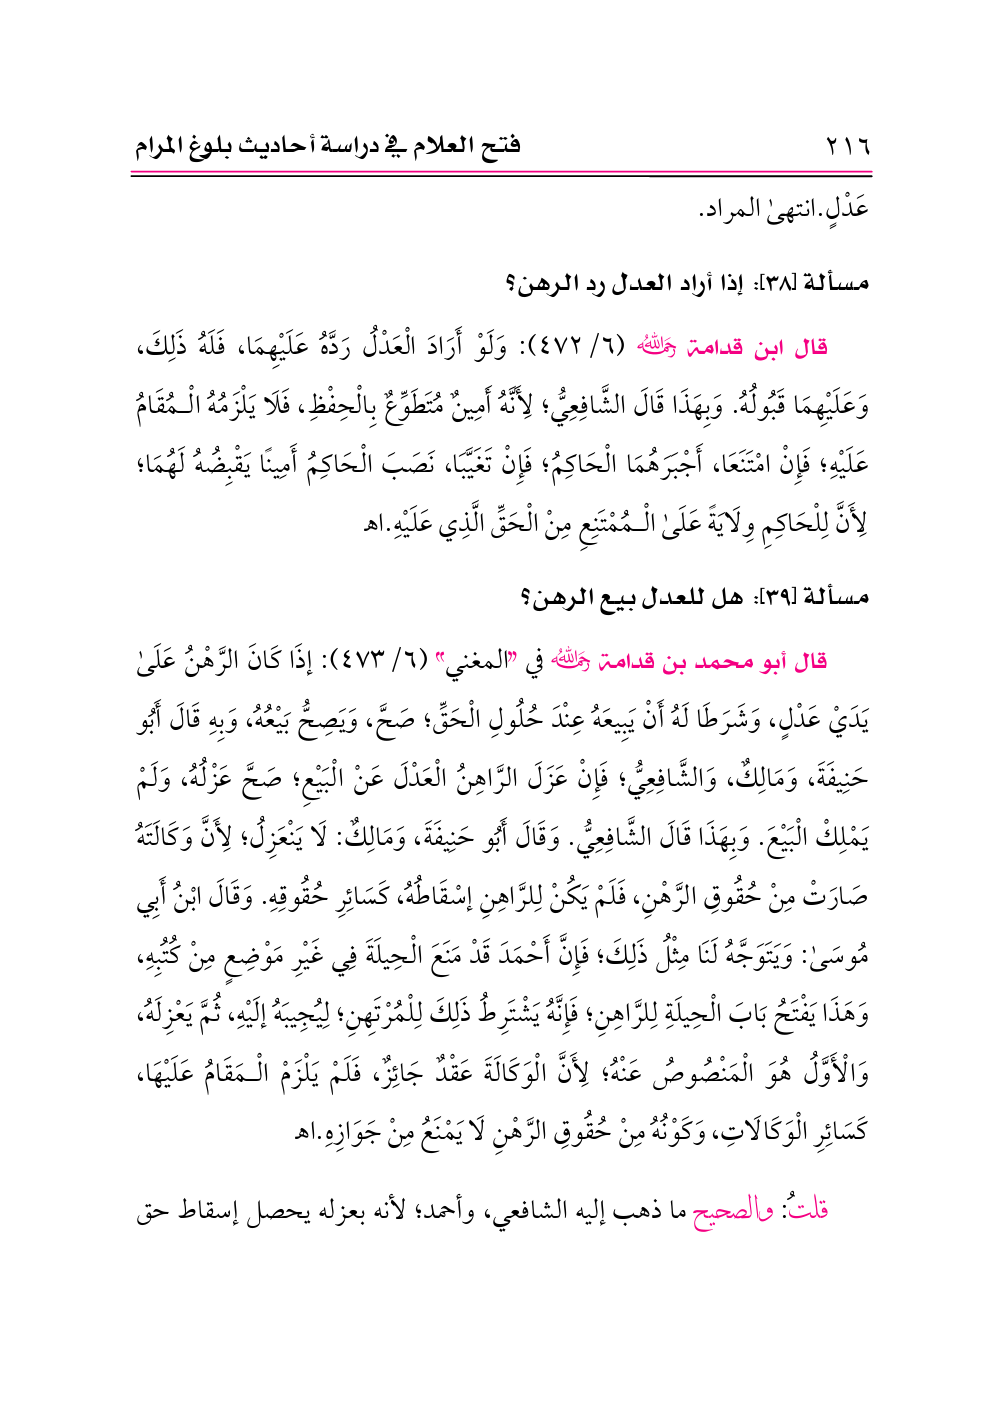 ٢١٦ فتح العلام في دراسة أحاديث بلوغ المرام
عَدْلٍ.انتهىٰ المراد.
مسألة [٣٨]: إذا أراد العدل رد الرهن؟
قال ابن قدامة رَحِمَهُ اللهُ (٦/ ٤٧٢): وَلَوْ أَرَادَ الْعَدْلُ رَدَّهُ عَلَيْهِمَا، فَلَهُ ذَلِكَ،
وَعَلَيْهِمَا قَبُولُهُ. وَبِهَذَا قَالَ الشَّافِعِيُّ؛ لِأَنَّهُ أَمِينٌ مُتَطَوِّعٌ بِالْحِفْظِ، فَلَا يَلْزَمُهُ الْـمُقَامُ
عَلَيْهِ؛ فَإِنْ امْتَنَعَا، أَجْبَرَهُمَا الْحَاكِمُ؛ فَإِنْ تَغَيَّبَا، نَصَبَ الْحَاكِمُ أَمِينًا يَقْبِضُهُ لَهُمَا؛
لِأَنَّ لِلْحَاكِمِ وِلَايَةً عَلَىٰ الْـمُمْتَنِعِ مِنْ الْحَقِّ الَّذِي عَلَيْهِ.اهـ
مسألة [٣٩]: هل للعدل بيع الرهن؟
قال أبو محمد بن قدامة رَحِمَهُ اللهُ في "المغني" (٦/ ٤٧٣): إِذَا كَانَ الرَّهْنُ عَلَىٰ
يَدَيْ عَدْلٍ، وَشَرَطَا لَهُ أَنْ يَبِيعَهُ عِنْدَ حُلُولِ الْحَقِّ؛ صَحَّ، وَيَصِحُّ بَيْعُهُ، وَبِهِ قَالَ أَبُو
حَنِيفَةَ، وَمَالِكٌ، وَالشَّافِعِيُّ؛ فَإِنْ عَزَلَ الرَّاهِنُ الْعَدْلَ عَنْ الْبَيْعِ؛ صَحَّ عَزْلُهُ، وَلَمْ
يَمْلِكْ الْبَيْعَ. وَبِهَذَا قَالَ الشَّافِعِيُّ. وَقَالَ أَبُو حَنِيفَةَ، وَمَالِكٌ: لَا يَنْعَزِلُ؛ لِأَنَّ وَكَالَتَهُ
صَارَتْ مِنْ حُقُوقِ الرَّهْنِ، فَلَمْ يَكُنْ لِلرَّاهِنِ إسْقَاطُهُ، كَسَائِرِ حُقُوقِهِ. وَقَالَ ابْنُ أَبِي
مُوسَىٰ: وَيَتَوَجَّهُ لَنَا مِثْلُ ذَلِكَ؛ فَإِنَّ أَحْمَدَ قَدْ مَنَعَ الْحِيلَةَ فِي غَيْرِ مَوْضِعٍ مِنْ كُتُبِهِ،
وَهَذَا يَفْتَحُ بَابَ الْحِيلَةِ لِلرَّاهِنِ؛ فَإِنَّهُ يَشْتَرِطُ ذَلِكَ لِلْمُرْتَهِنِ؛ لِيُجِيبَهُ إلَيْهِ، ثُمَّ يَعْزِلَهُ،
وَالْأَوَّلُ هُوَ الْمَنْصُوصُ عَنْهُ؛ لِأَنَّ الْوَكَالَةَ عَقْدٌ جَائِزٌ، فَلَمْ يَلْزَمْ الْـمَقَامُ عَلَيْهَا،
كَسَائِرِ الْوَكَالَاتِ، وَكَوْنُهُ مِنْ حُقُوقِ الرَّهْنِ لَا يَمْنَعُ مِنْ جَوَازِهِ.اهـ
قلتُ: والصحيح ما ذهب إليه الشافعي، وأحمد؛ لأنه بعزله يحصل إسقاط حق